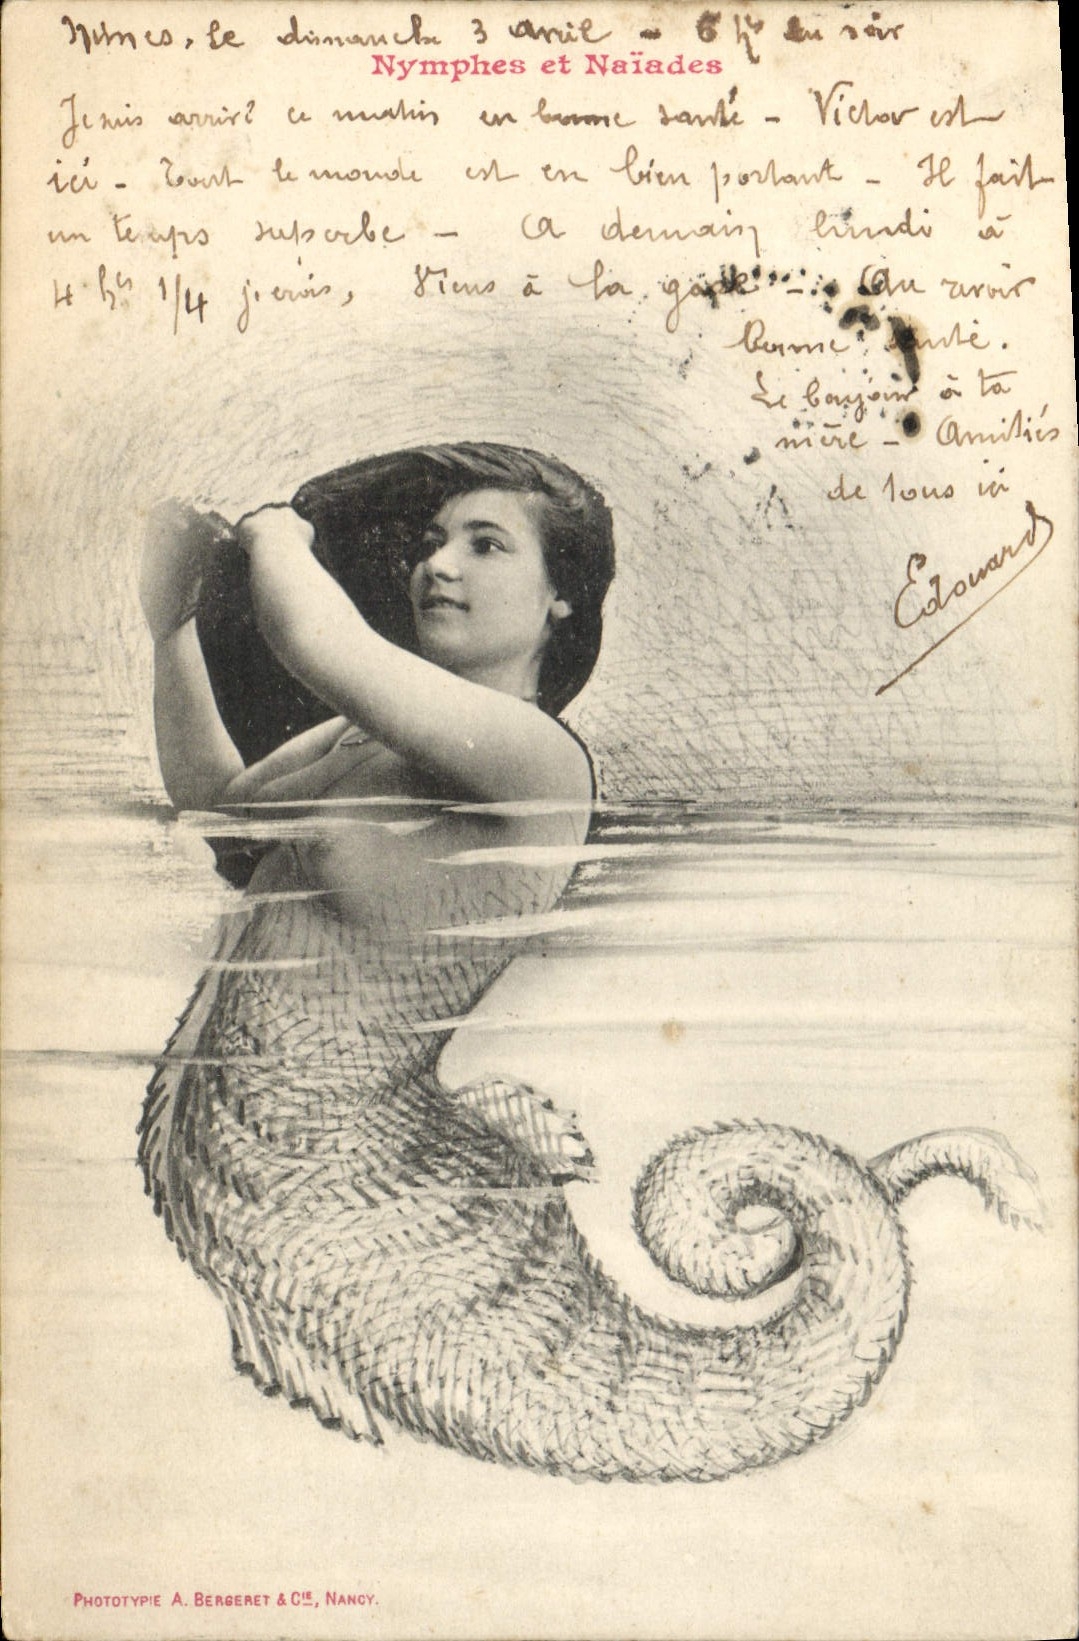 Nîmes, le dimanche 3 avril - 6 hs du soir
Nymphes et Naïades
Je suis arrivé ce matin en bonne santé - Victor est
ici - Tout le monde est en bien portant - Il fait
un temps superbe - A demain lundi à
4 hs 1/4 je crois, Viens à la gare - Au revoir
Bonne santé.
Le bonjour à ta
mère - Amitiés
de tous ici
Edouard
PHOTOTYPIE A. BERGERET & CIE, NANCY.